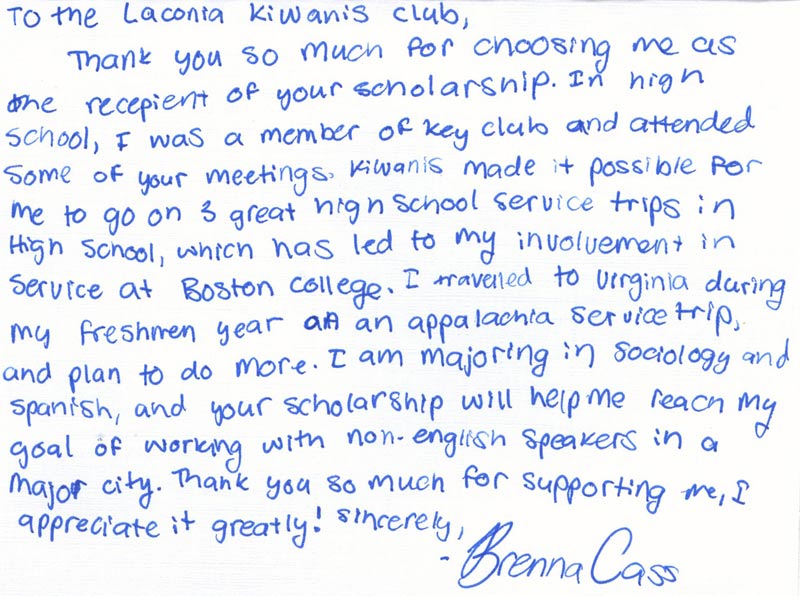 To the Laconia Kiwanis club,
Thank you so much for choosing me as
the recepient of your scholarship. In high
school, I was a member of key club and attended
some of your meetings. Kiwanis made it possible for
me to go on 3 great high school service trips in
High School, which has led to my involvement in
service at Boston College. I travelled to Virginia during
my freshmen year an appalachia service trip,
and plan to do more. I am majoring in sociology and
spanish, and your scholarship will help me reach my
goal of working with non-english speakers in a
major city. Thank you so much for supporting me, I
appreciate it greatly! sincerely,
- Brenna Cass